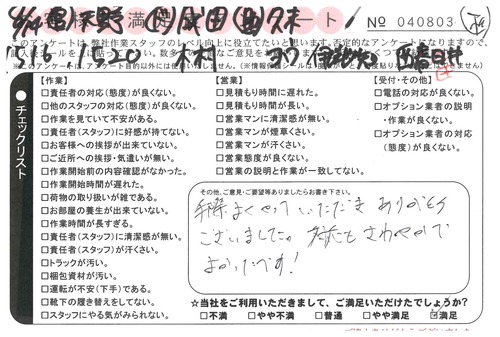 お客様満足度アンケート No 040803
このアンケートは、弊社作業スタッフのレベル向上に役立てたいと思います。否定的なアンケートになりますので、
チェックリスト
【作業】
□責任者の対応(態度)が良くない。
□他のスタッフの対応(態度)が良くない。
□作業を見ていて不安がある。
□責任者(スタッフ)に好感が持てない。
□お客様への挨拶が出来ていない。
□ご近所への挨拶・気遣いが無い。
□作業開始前の内容確認がなかった。
□作業開始時間が遅れた。
□荷物の取り扱いが雑である。
□お部屋の養生が出来ていない。
□作業時間が長すぎる。
□責任者(スタッフ)に清潔感が無い。
□責任者(スタッフ)が汗くさい。
□トラックが汚い。
□梱包資材が汚い。
□運転が不安(下手)である。
□靴下の履き替えをしてない。
□スタッフにやる気がみられない。
【営業】
□見積もり時間に遅れた。
□見積もり時間が長い。
□営業マンに清潔感が無い。
□営業マンが煙草くさい。
□営業マンが汗くさい。
□営業態度が良くない。
□営業の説明と作業が一致してない。
【受付・その他】
□電話の対応が良くない。
□オプション業者の説明
・作業が良くない。
□オプション業者の対応
(態度)が良くない。
その他、ご意見・ご要望等ありましたらお書き下さい。
手際よくやっていただきありがとう
ございました。対応もさわやかで
よかったです!
☆当社をご利用いただきまして、ご満足いただけたでしょうか?
□不満 □やや不満 □普通 □やや満足 ☑満足